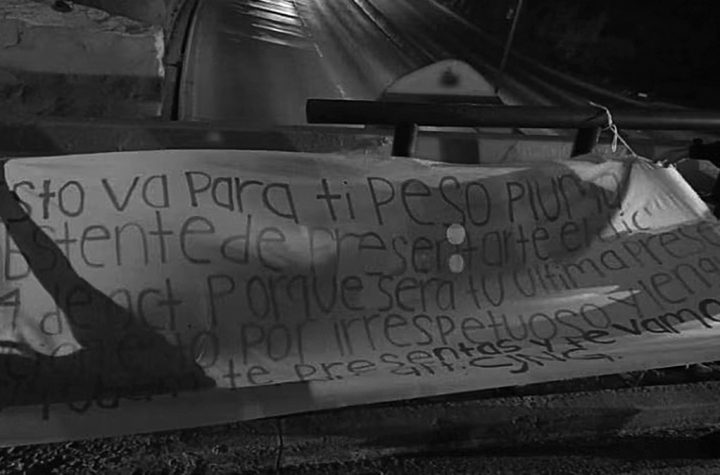 sto va para ti Peso Pluma
Abstente de presentarte el dic
4 de oct Porque sera tu Ultima Prese
por irrespetuoso y leng
te presentas y te vamo
CJNG.